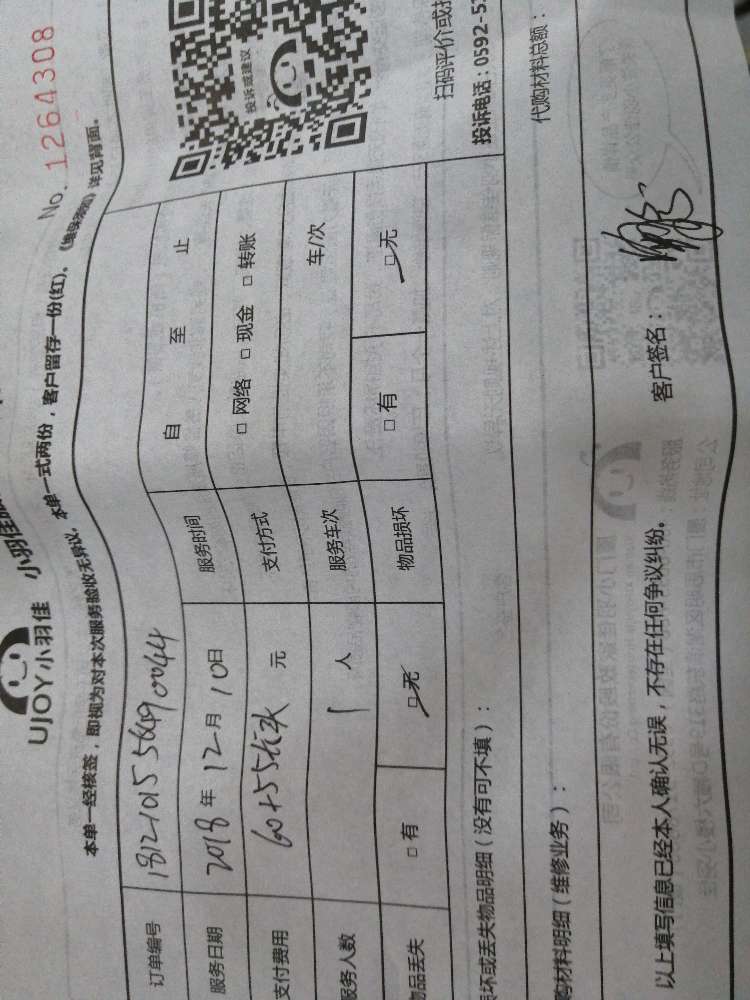 UJOY小羽佳 小羽佳
No. 1264308
本单一经核签，即视为对本次服务验收无异议。本单一式两份，客户留存一份(红)。《维保须知》详见背面。
投诉或建议
订单编号 1812101556490044 自 至 止
服务日期 2018 年 12 月 10 日 服务时间
支付费用 60+55 元 支付方式 □ 网络 □ 现金 □ 转账
服务人数 1 人 服务车次 车/次
物品丢失 □ 有 □ 无 物品损坏 □ 有 □ 无
扫码评价或
投诉电话：0592-5
坏或丢失物品明细（没有可不填）：
购材料明细（维修业务）：
代购材料总额：
以上填写信息已经本人确认无误，不存在任何争议纠纷。 客户签名：